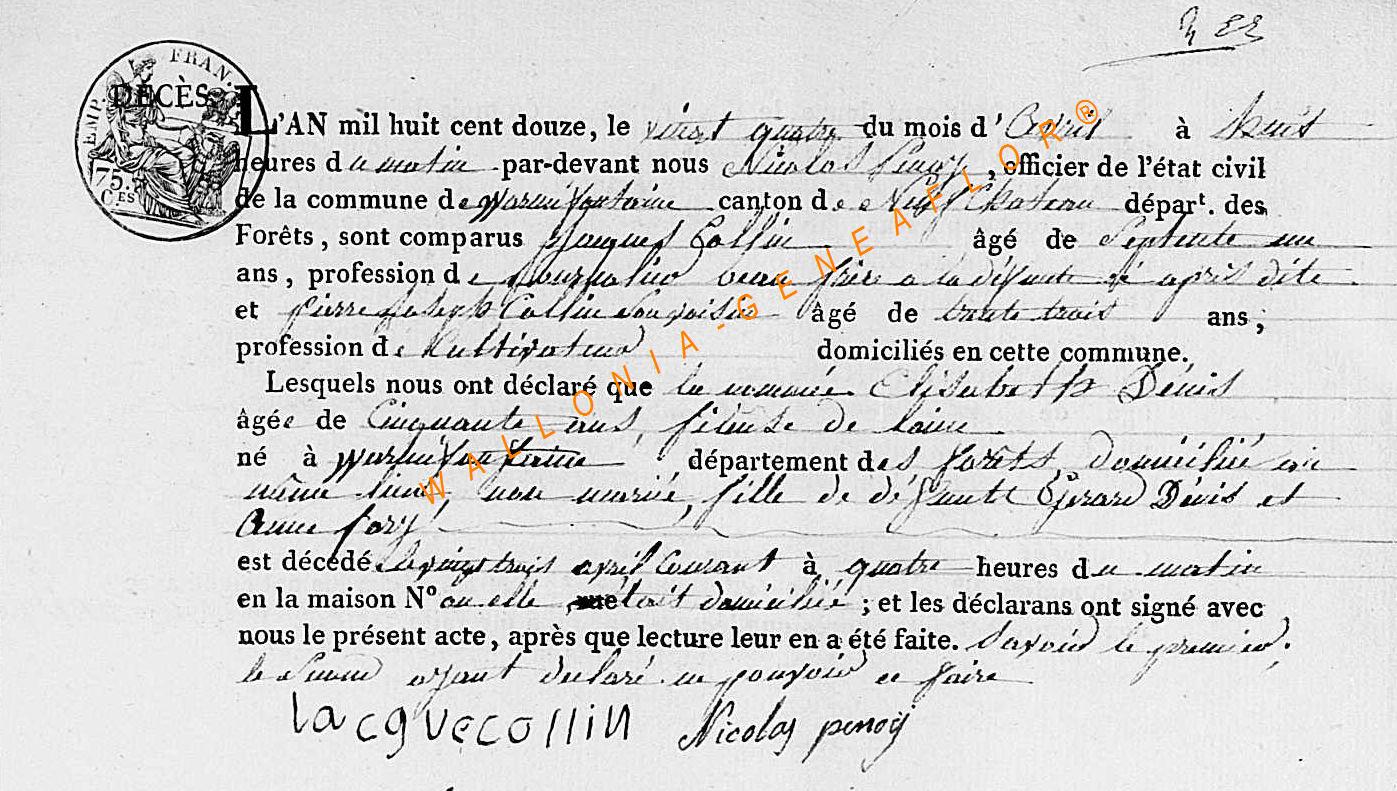 EMP. FRAN.
DÉCÈS.
75.
C.ES
L'AN mil huit cent douze, le vingt quatre du mois d'Avril à huit
heures du matin par-devant nous Nicolas Penoy, officier de l'état civil
de la commune de Warmifontaine canton de Neufchateau départ. des
Forêts, sont comparus Jacques Collin âgé de Septente un
ans, profession de Journalier beau frère a la défunte ci après dite
et pierre joseph Collin son voisin âgé de trente trois ans;
profession de Cultivateur domiciliés en cette commune.
Lesquels nous ont déclaré que la nommée Elisabeth Dénis
âgée de Cinquante ans, fileuse de laine
né à Warmifontaine département des forets, domiciliée au
même lieu, non mariée, fille de défunts Gérard Dénis et
Anne
est décédé le vingt trois avril Courant à quatre heures du matin
en la maison N° ou elle était domiciliée; et les déclarans ont signé avec
nous le présent acte, après que lecture leur en a été faite. Savoir le premier;
le second ayant declaré ne pouvoir ce faire
Iacque collin Nicolas penoy
WALLONIA-GENEAFLOR®